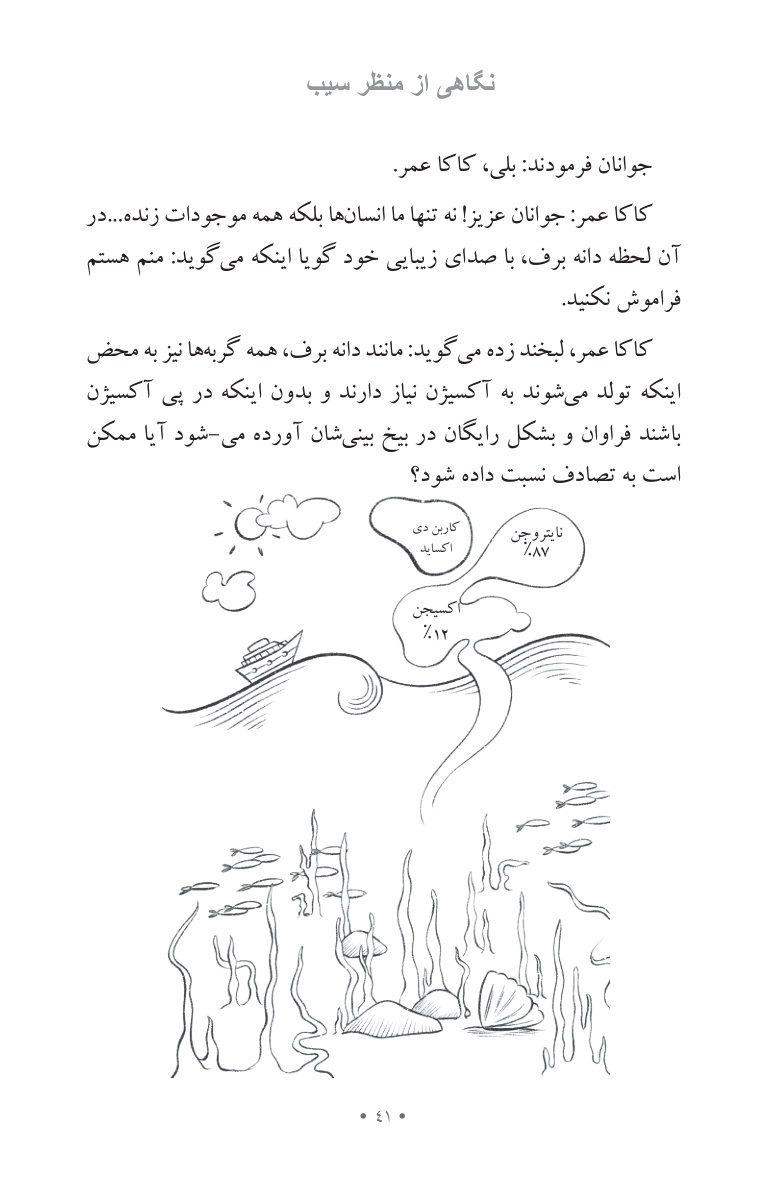 نگاهی از منظر سیب
جوانان فرمودند: بلی، کاکا عمر.
کاکا عمر: جوانان عزیز! نه تنها ما انسان‌ها بلکه همه موجودات زنده...در
آن لحظه دانه برف، با صدای زیبایی خود گویا اینکه می‌گوید: منم هستم
فراموش نکنید.
کاکا عمر، لبخند زده می‌گوید: مانند دانه برف، همه گربه‌ها نیز به محض
اینکه تولد می‌شوند به آکسیژن نیاز دارند و بدون اینکه در پی آکسیژن
باشند فراوان و بشکل رایگان در بیخ بینی‌شان آورده می-شود آیا ممکن
است به تصادف نسبت داده شود؟
کاربن دی
اکساید
نایتروجن
٪۸۷
اکسیجن
٪۱۲
• ٤١ •